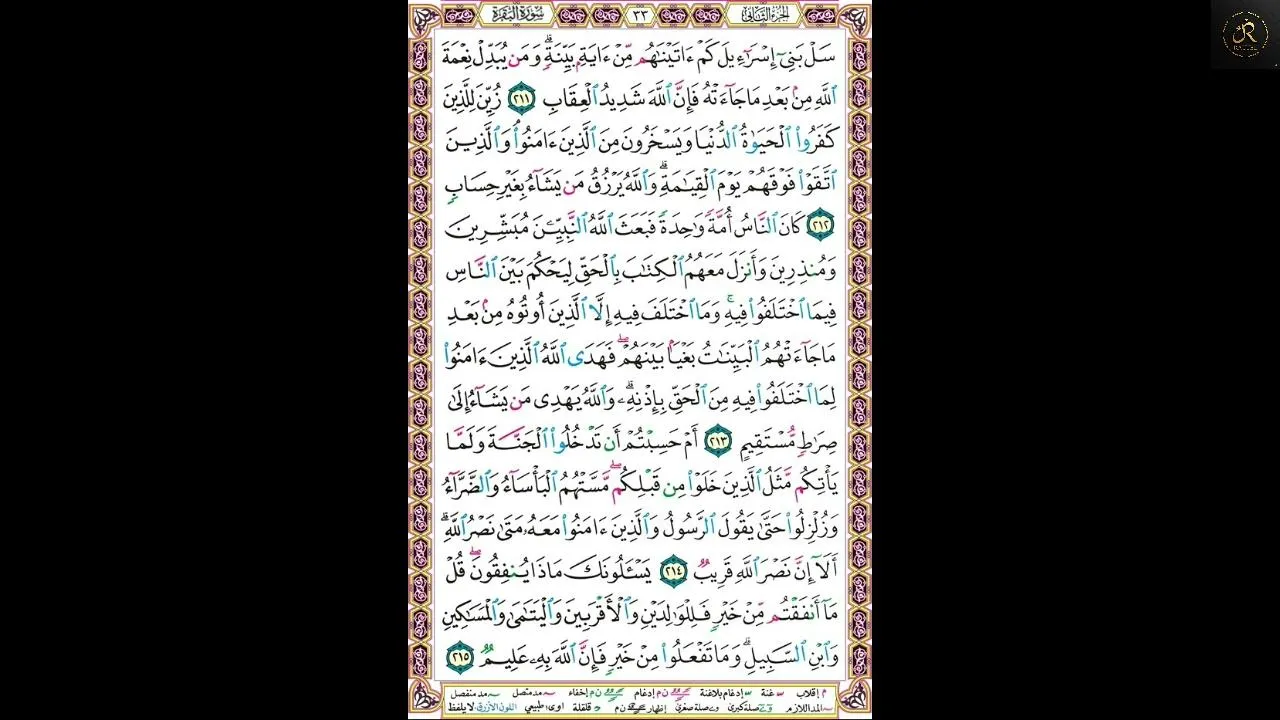 سُورَةُ البَقَرَة ٣٣ الجُزءُ الثَّانِي
سَلْ بَنِىٓ إِسْرَٰٓءِيلَ كَمْ ءَاتَيْنَٰهُم مِّنْ ءَايَةٍۭ بَيِّنَةٍۗ وَمَن يُبَدِّلْ نِعْمَةَ
ٱللَّهِ مِنۢ بَعْدِ مَا جَآءَتْهُ فَإِنَّ ٱللَّهَ شَدِيدُ ٱلْعِقَابِ ٢١١ زُيِّنَ لِلَّذِينَ
كَفَرُوا۟ ٱلْحَيَوٰةُ ٱلدُّنْيَا وَيَسْخَرُونَ مِنَ ٱلَّذِينَ ءَامَنُوا۟ۘ وَٱلَّذِينَ
ٱتَّقَوْا۟ فَوْقَهُمْ يَوْمَ ٱلْقِيَٰمَةِۗ وَٱللَّهُ يَرْزُقُ مَن يَشَآءُ بِغَيْرِ حِسَابٍ
٢١٢ كَانَ ٱلنَّاسُ أُمَّةً وَٰحِدَةً فَبَعَثَ ٱللَّهُ ٱلنَّبِيِّۦنَ مُبَشِّرِينَ
وَمُنذِرِينَ وَأَنزَلَ مَعَهُمُ ٱلْكِتَٰبَ بِٱلْحَقِّ لِيَحْكُمَ بَيْنَ ٱلنَّاسِ
فِيمَا ٱخْتَلَفُوا۟ فِيهِۚ وَمَا ٱخْتَلَفَ فِيهِ إِلَّا ٱلَّذِينَ أُوتُوهُ مِنۢ بَعْدِ
مَا جَآءَتْهُمُ ٱلْبَيِّنَٰتُ بَغْيًۢا بَيْنَهُمْۖ فَهَدَى ٱللَّهُ ٱلَّذِينَ ءَامَنُوا۟
لِمَا ٱخْتَلَفُوا۟ فِيهِ مِنَ ٱلْحَقِّ بِإِذْنِهِۦۗ وَٱللَّهُ يَهْدِى مَن يَشَآءُ إِلَىٰ
صِرَٰطٍ مُّسْتَقِيمٍ ٢١٣ أَمْ حَسِبْتُمْ أَن تَدْخُلُوا۟ ٱلْجَنَّةَ وَلَمَّا
يَأْتِكُم مَّثَلُ ٱلَّذِينَ خَلَوْا۟ مِن قَبْلِكُمۖ مَّسَّتْهُمُ ٱلْبَأْسَآءُ وَٱلضَّرَّآءُ
وَزُلْزِلُوا۟ حَتَّىٰ يَقُولَ ٱلرَّسُولُ وَٱلَّذِينَ ءَامَنُوا۟ مَعَهُۥ مَتَىٰ نَصْرُ ٱللَّهِۗ
أَلَآ إِنَّ نَصْرَ ٱللَّهِ قَرِيبٌ ٢١٤ يَسْـَٔلُونَكَ مَاذَا يُنفِقُونَۖ قُلْ
مَآ أَنفَقْتُم مِّنْ خَيْرٍ فَلِلْوَٰلِدَيْنِ وَٱلْأَقْرَبِينَ وَٱلْيَتَٰمَىٰ وَٱلْمَسَٰكِينِ
وَٱبْنِ ٱلسَّبِيلِۗ وَمَا تَفْعَلُوا۟ مِنْ خَيْرٍ فَإِنَّ ٱللَّهَ بِهِۦ عَلِيمٌ ٢١٥
م إقلاب غنة إدغام بلاغنة ن م إدغام ن م إخفاء مد متصل مد منفصل
المد اللازم صلة كبرى صلة صغرى إظهار ن م قلقلة اوى طبيعي اللون الأزرق لا يلفظ